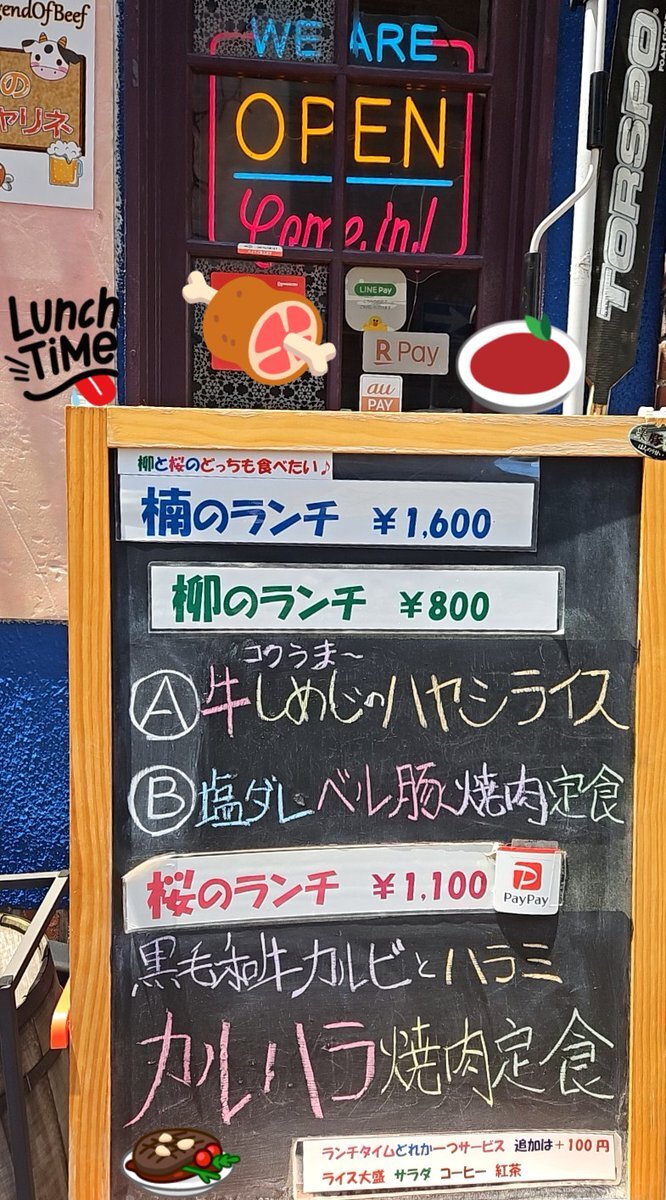 gendOfBeef
の
ャリネ
WE ARE
OPEN
Come in!
LUNCH
TIME
LINE Pay
R Pay
au
PAY
TORSPO
柳と桜のどっちも食べたい♪
楠のランチ ￥1,600
柳のランチ ￥800
コウうま〜
Ⓐ牛しめじのハヤシライス
Ⓑ塩ダレベル豚焼肉定食
桜のランチ ￥1,100
PayPay
黒毛和牛カルビとハラミ
カルハラ焼肉定食
ランチタイムどれか一つサービス 追加は＋100円
ライス大盛 サラダ コーヒー 紅茶